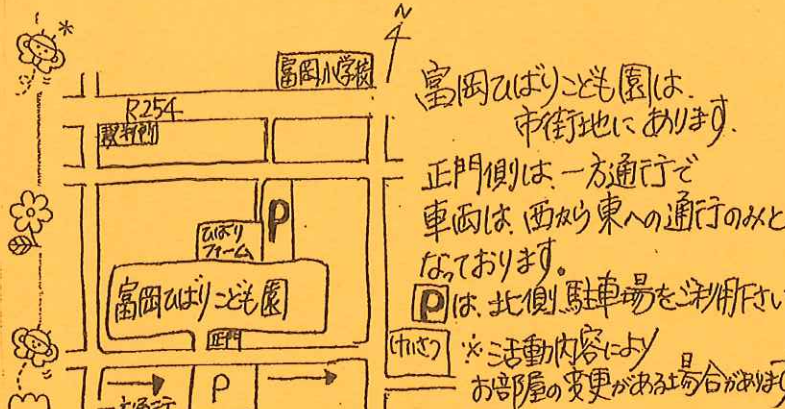 N
富岡小学校
R254
裁判所
P
ひばり
ファーム
富岡ひばりこども園
正門
けいさつ
P
一方通行
富岡ひばりこども園は、
市街地にあります。
正門側は、一方通行で
車両は、西から東への通行のみと
なっております。
Pは、北側駐車場をご利用下さい
※活動内容により
お部屋の変更がある場合があります